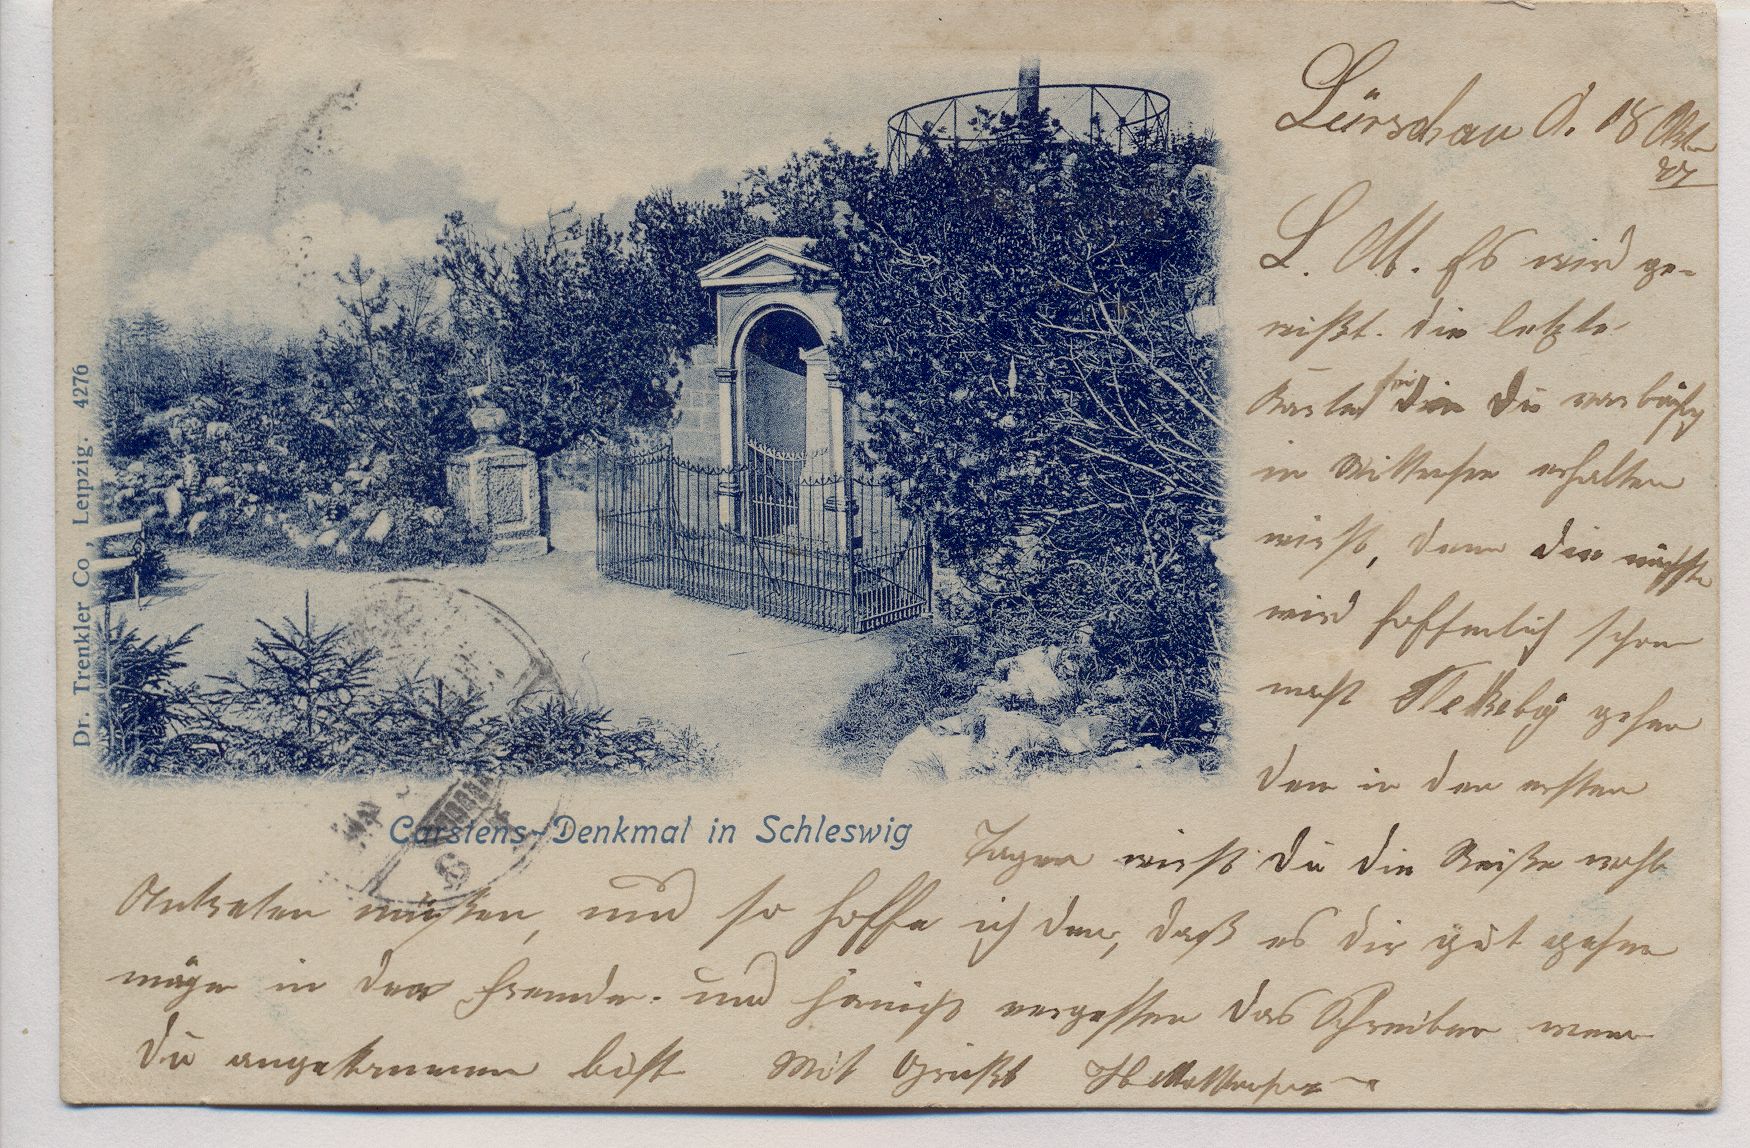 Dr. Trenkler Co., Leipzig. 4276
Carstens-Denkmal in Schleswig
Lürschau d. 18 Okt.
L. M. Es wird ge-
wißt. die letzte
Karte sei die Du
in erhalten
wirst, denn die nächste
wird hoffentlich schon
nach Fleckeby gehen
den in den ersten
Tagen wirst Du die Reise wohl
Antreten müßen, und so hoffe ich den, daß es dir gut gehen
möge in der Fremde. und ja nicht vergessen das Schreiben wenn
Du angekommen bist Mit Grußt